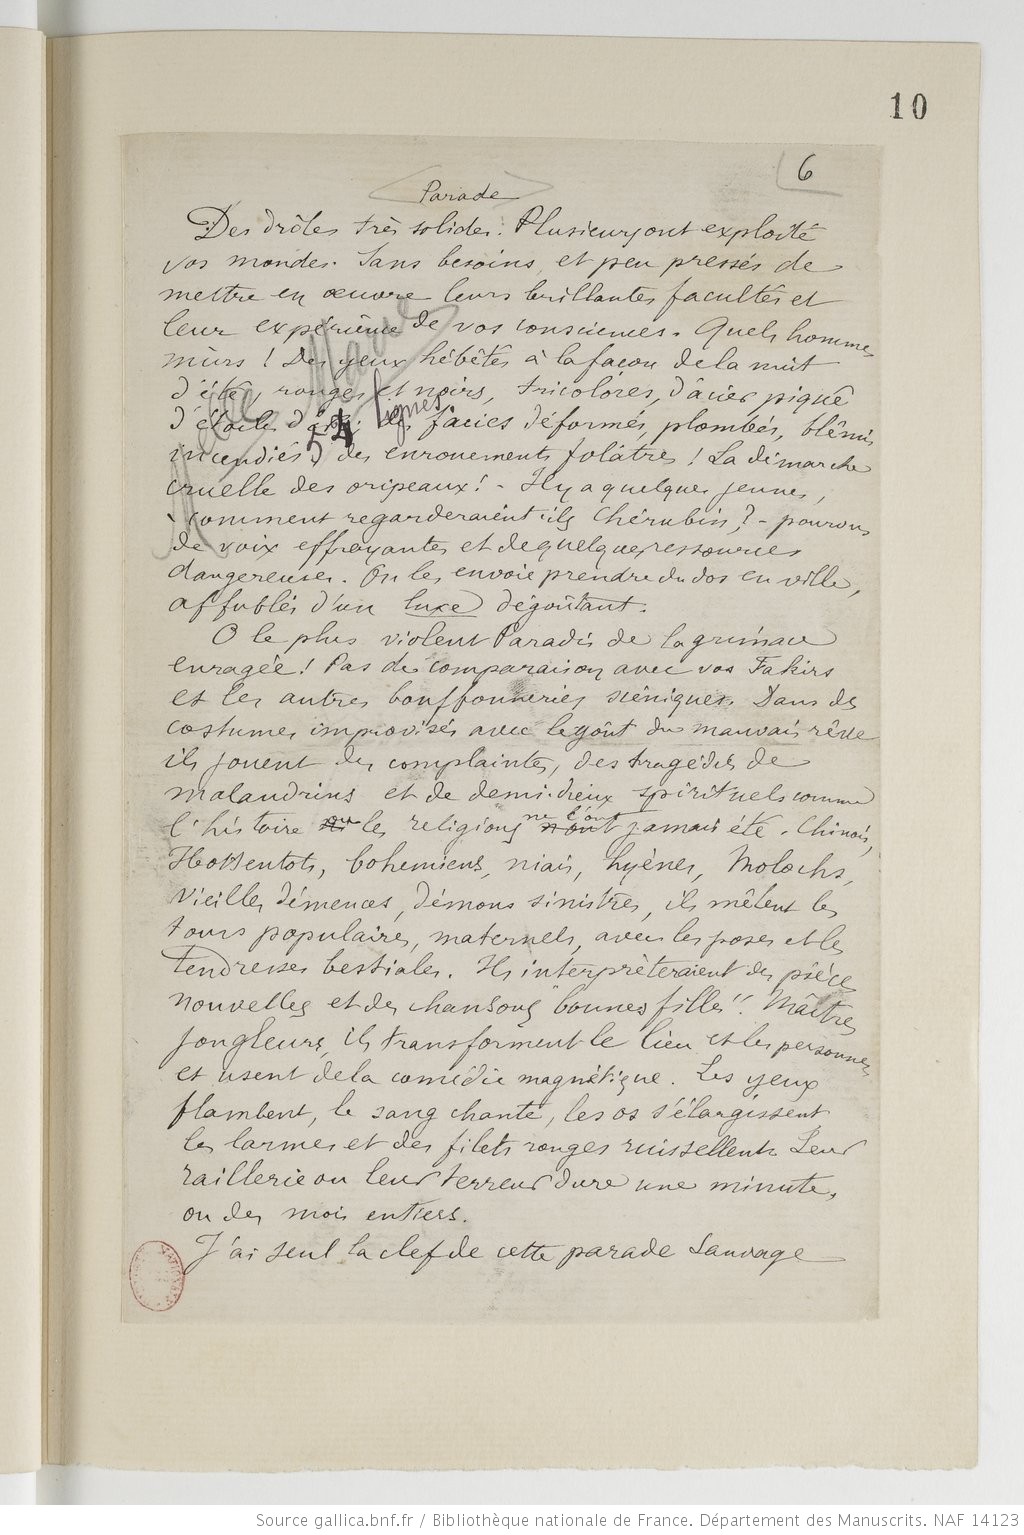 10
6
Parade
Des drôles très solides. Plusieurs ont exploité
vos mondes. Sans besoins, et peu pressés de
mettre en œuvre leurs brillantes facultés et
leur expérience de vos consciences. Quels hommes
mûrs ! Des yeux hébétés à la façon de la nuit
d'été, rouges et noirs, tricolores, d'acier piqué
d'étoiles d'or ; des facies déformés, plombés, blêmis
incendiés ; des enrouements folâtres ! La démarche
cruelle des oripeaux ! - Il y a quelques jeunes,
- comment regarderaient-ils Chérubin ? - pourvus
de voix effrayantes et de quelques ressources
dangereuses. On les envoie prendre du dos en ville,
affublés d'un luxe dégoûtant.
O le plus violent Paradis de la grimace
enragée ! Pas de comparaison avec vos Fakirs
et les autres bouffonneries scéniques. Dans des
costumes improvisés avec le goût du mauvais rêve
ils jouent des complaintes, des tragédies de
malandrins et de demi-dieux spirituels comme
ne l'ont
l'histoire ou les religions n'ont jamais été. Chinois,
Hottentots, bohémiens, niais, hyènes, Molochs,
vieilles démences, démons sinistres, ils mêlent les
tours populaires, maternels, avec les poses et les
tendresses bestiales. Ils interpréteraient des pièces
nouvelles et des chansons "bonnes filles". Maîtres
jongleurs, ils transforment le lieu et les personnes
et usent de la comédie magnétique. Les yeux
flambent, le sang chante, les os s'élargissent
les larmes et des filets rouges ruissellent. Leur
raillerie ou leur terreur dure une minute,
ou des mois entiers.
J'ai seul la clef de cette parade sauvage
Marie
lignes
Source gallica.bnf.fr / Bibliothèque nationale de France. Département des Manuscrits. NAF 14123